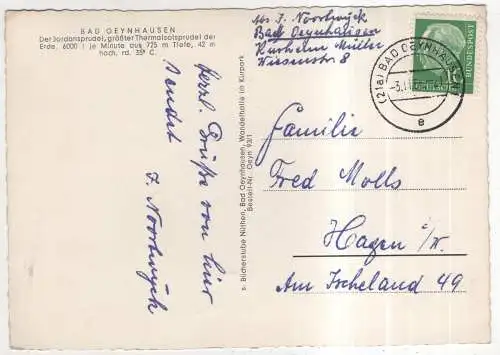 BAD OEYNHAUSEN
Der Jordansprudel, größter Thermalsolsprudel der
Erde. 6000 l je Minute aus 725 m Tiefe, 42 m
hoch, rd. 35° C.
Herzl. Grüße von hier
sendet
J. Noortwyck
s. Bücherstube Nüthen, Bad Oeynhausen, Wandelhalle im Kurpark
Bestell-Nr. Oeyn 931
Abs. J. Noortwyck
Bad Oeynhausen
Kurheim Müller
Wiesenstr 8
(21a) BAD OEYNHAUSEN
e
BUNDESPOST
Familie
Fred Molls
Hagen i/W.
Am Ischeland 49